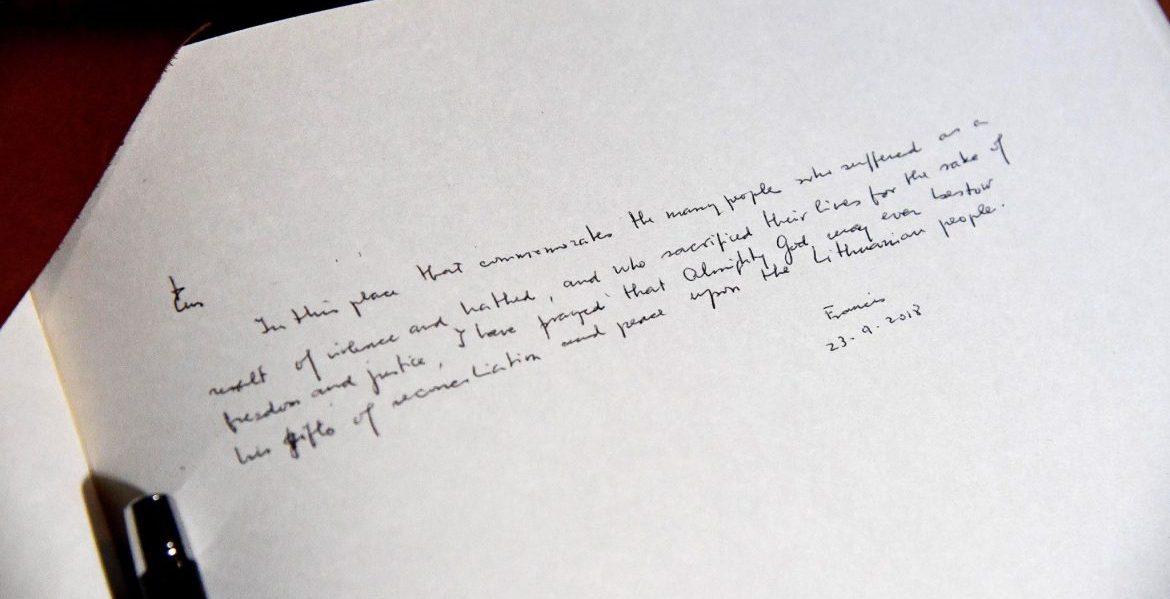 In this place that commemorates the many people who suffered as a
result of violence and hatred, and who sacrificed their lives for the sake of
freedom and justice, I have prayed that Almighty God may ever bestow
his gifts of reconciliation and peace upon the Lithuanian people.
Francis
23.9.2018